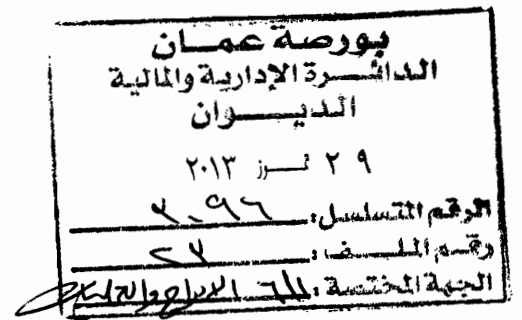 بورصة عمان
الدائرة الإدارية والمالية
الديوان
٢٩ تموز ٢٠١٣
الرقم المتسلسل:
رقم الملف:
الجهة المختصة: الإدراج